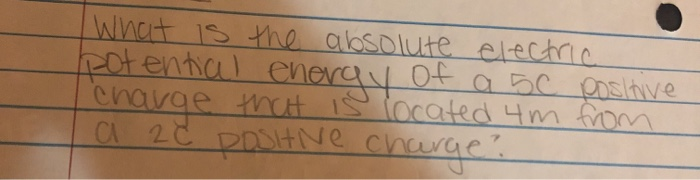 What is the absolute electric
potential energy of a 5C positive
charge that is located 4m from
a 2C positive charge?